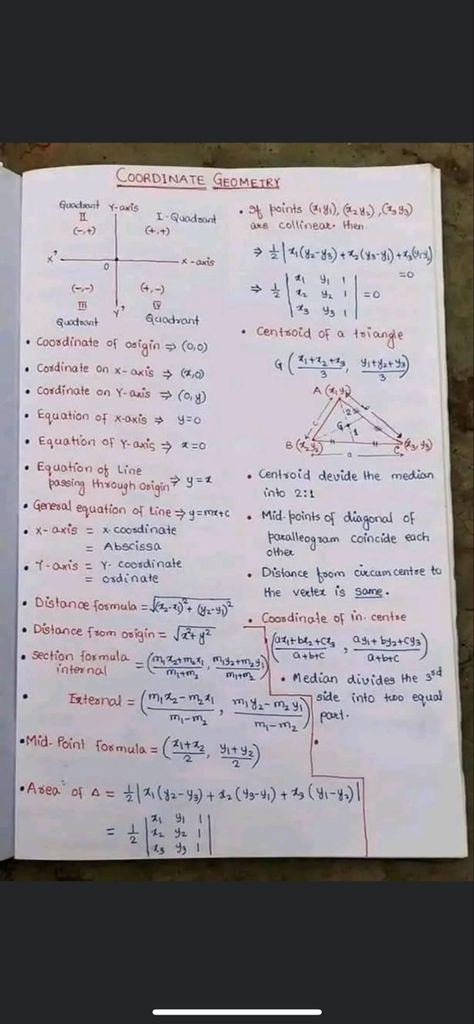 COORDINATE GEOMETRY
Quadrant Y-axis
II
(-,+)
I-Quadrant
(+,+)
X'
O
X-axis
(-,-)
III
Quadrant
(+,-)
IV
Quadrant
Y'
• Coordinate of origin ⇒ (0,0)
• Cordinate on X-axis ⇒ (x,0)
• Cordinate on Y-axis ⇒ (0,y)
• Equation of x-axis ⇒ y=0
• Equation of Y-axis ⇒ x=0
• Equation of Line
passing through origin ⇒ y=x
• General equation of Line ⇒ y=mx+c
• X-axis = x-coordinate
= Abscissa
• Y-axis = Y-coordinate
= ordinate
• Distance formula = √(x₂-x₁)²+(y₂-y₁)²
• Distance from origin = √x²+y²
• Section formula
internal = (m₁x₂+m₂x₁/m₁+m₂, m₁y₂+m₂y₁/m₁+m₂)
• External = (m₁x₂-m₂x₁/m₁-m₂, m₁y₂-m₂y₁/m₁-m₂)
• Mid-Point formula = (x₁+x₂/2, y₁+y₂/2)
• Area of Δ = 1/2|x₁(y₂-y₃)+x₂(y₃-y₁)+x₃(y₁-y₂)|
= 1/2 |x₁ y₁ 1
x₂ y₂ 1
x₃ y₃ 1|
• If points (x₁y₁), (x₂y₂), (x₃y₃)
are collinear then
⇒ 1/2|x₁(y₂-y₃)+x₂(y₃-y₁)+x₃(y₁-y₂)|
=0
⇒ 1/2 |x₁ y₁ 1
x₂ y₂ 1
x₃ y₃ 1| =0
• Centroid of a triangle
G(x₁+x₂+x₃/3, y₁+y₂+y₃/3)
A(x₁y₁)
2
G
1
B(x₂y₂)
C(x₃,y₃)
a
• Centroid devide the median
into 2:1
• Mid-points of diagonal of
paralleogram coincide each
other
• Distance from circumcentre to
the vertex is same.
• Coordinate of in-centre
(ax₁+bx₂+cx₃/a+b+c, ay₁+by₂+cy₃/a+b+c)
• Median divides the 3rd
side into two equal
part.